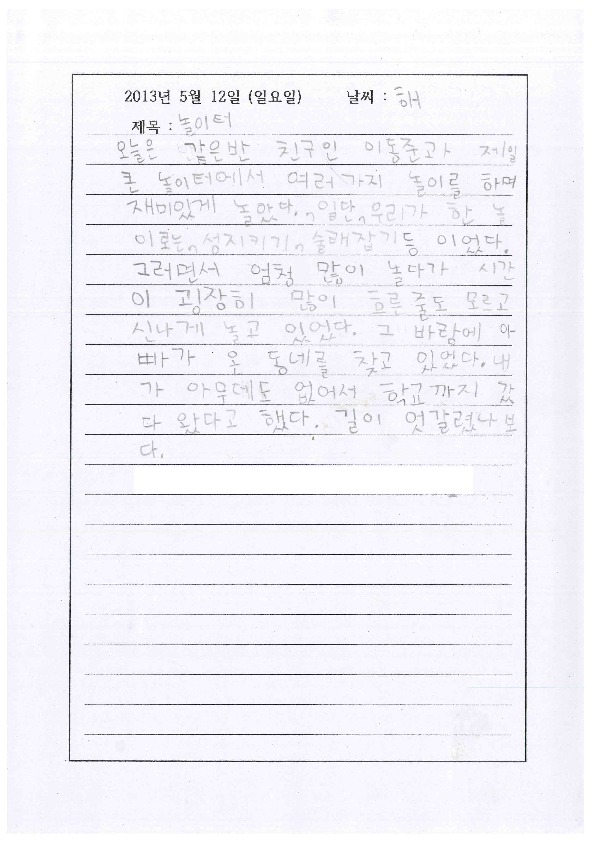 2013년 5월 12일 (일요일) 날씨 : 해
제목 : 놀이터
오늘은 같은반 친구인 이동준과 제일
큰 놀이터에서 여러가지 놀이를 하며
재미있게 놀았다. 일단, 우리가 한 놀
이로는, 성지키기, 술래잡기등 이었다.
그러면서 엄청 많이 놀다가 시간
이 굉장히 많이 흐른 줄도 모르고
신나게 놀고 있었다. 그 바람에 아
빠가 온 동네를 찾고 있었다. 내
가 아무데도 없어서 학교까지 갔
다 왔다고 했다. 길이 엇갈렸나보
다.